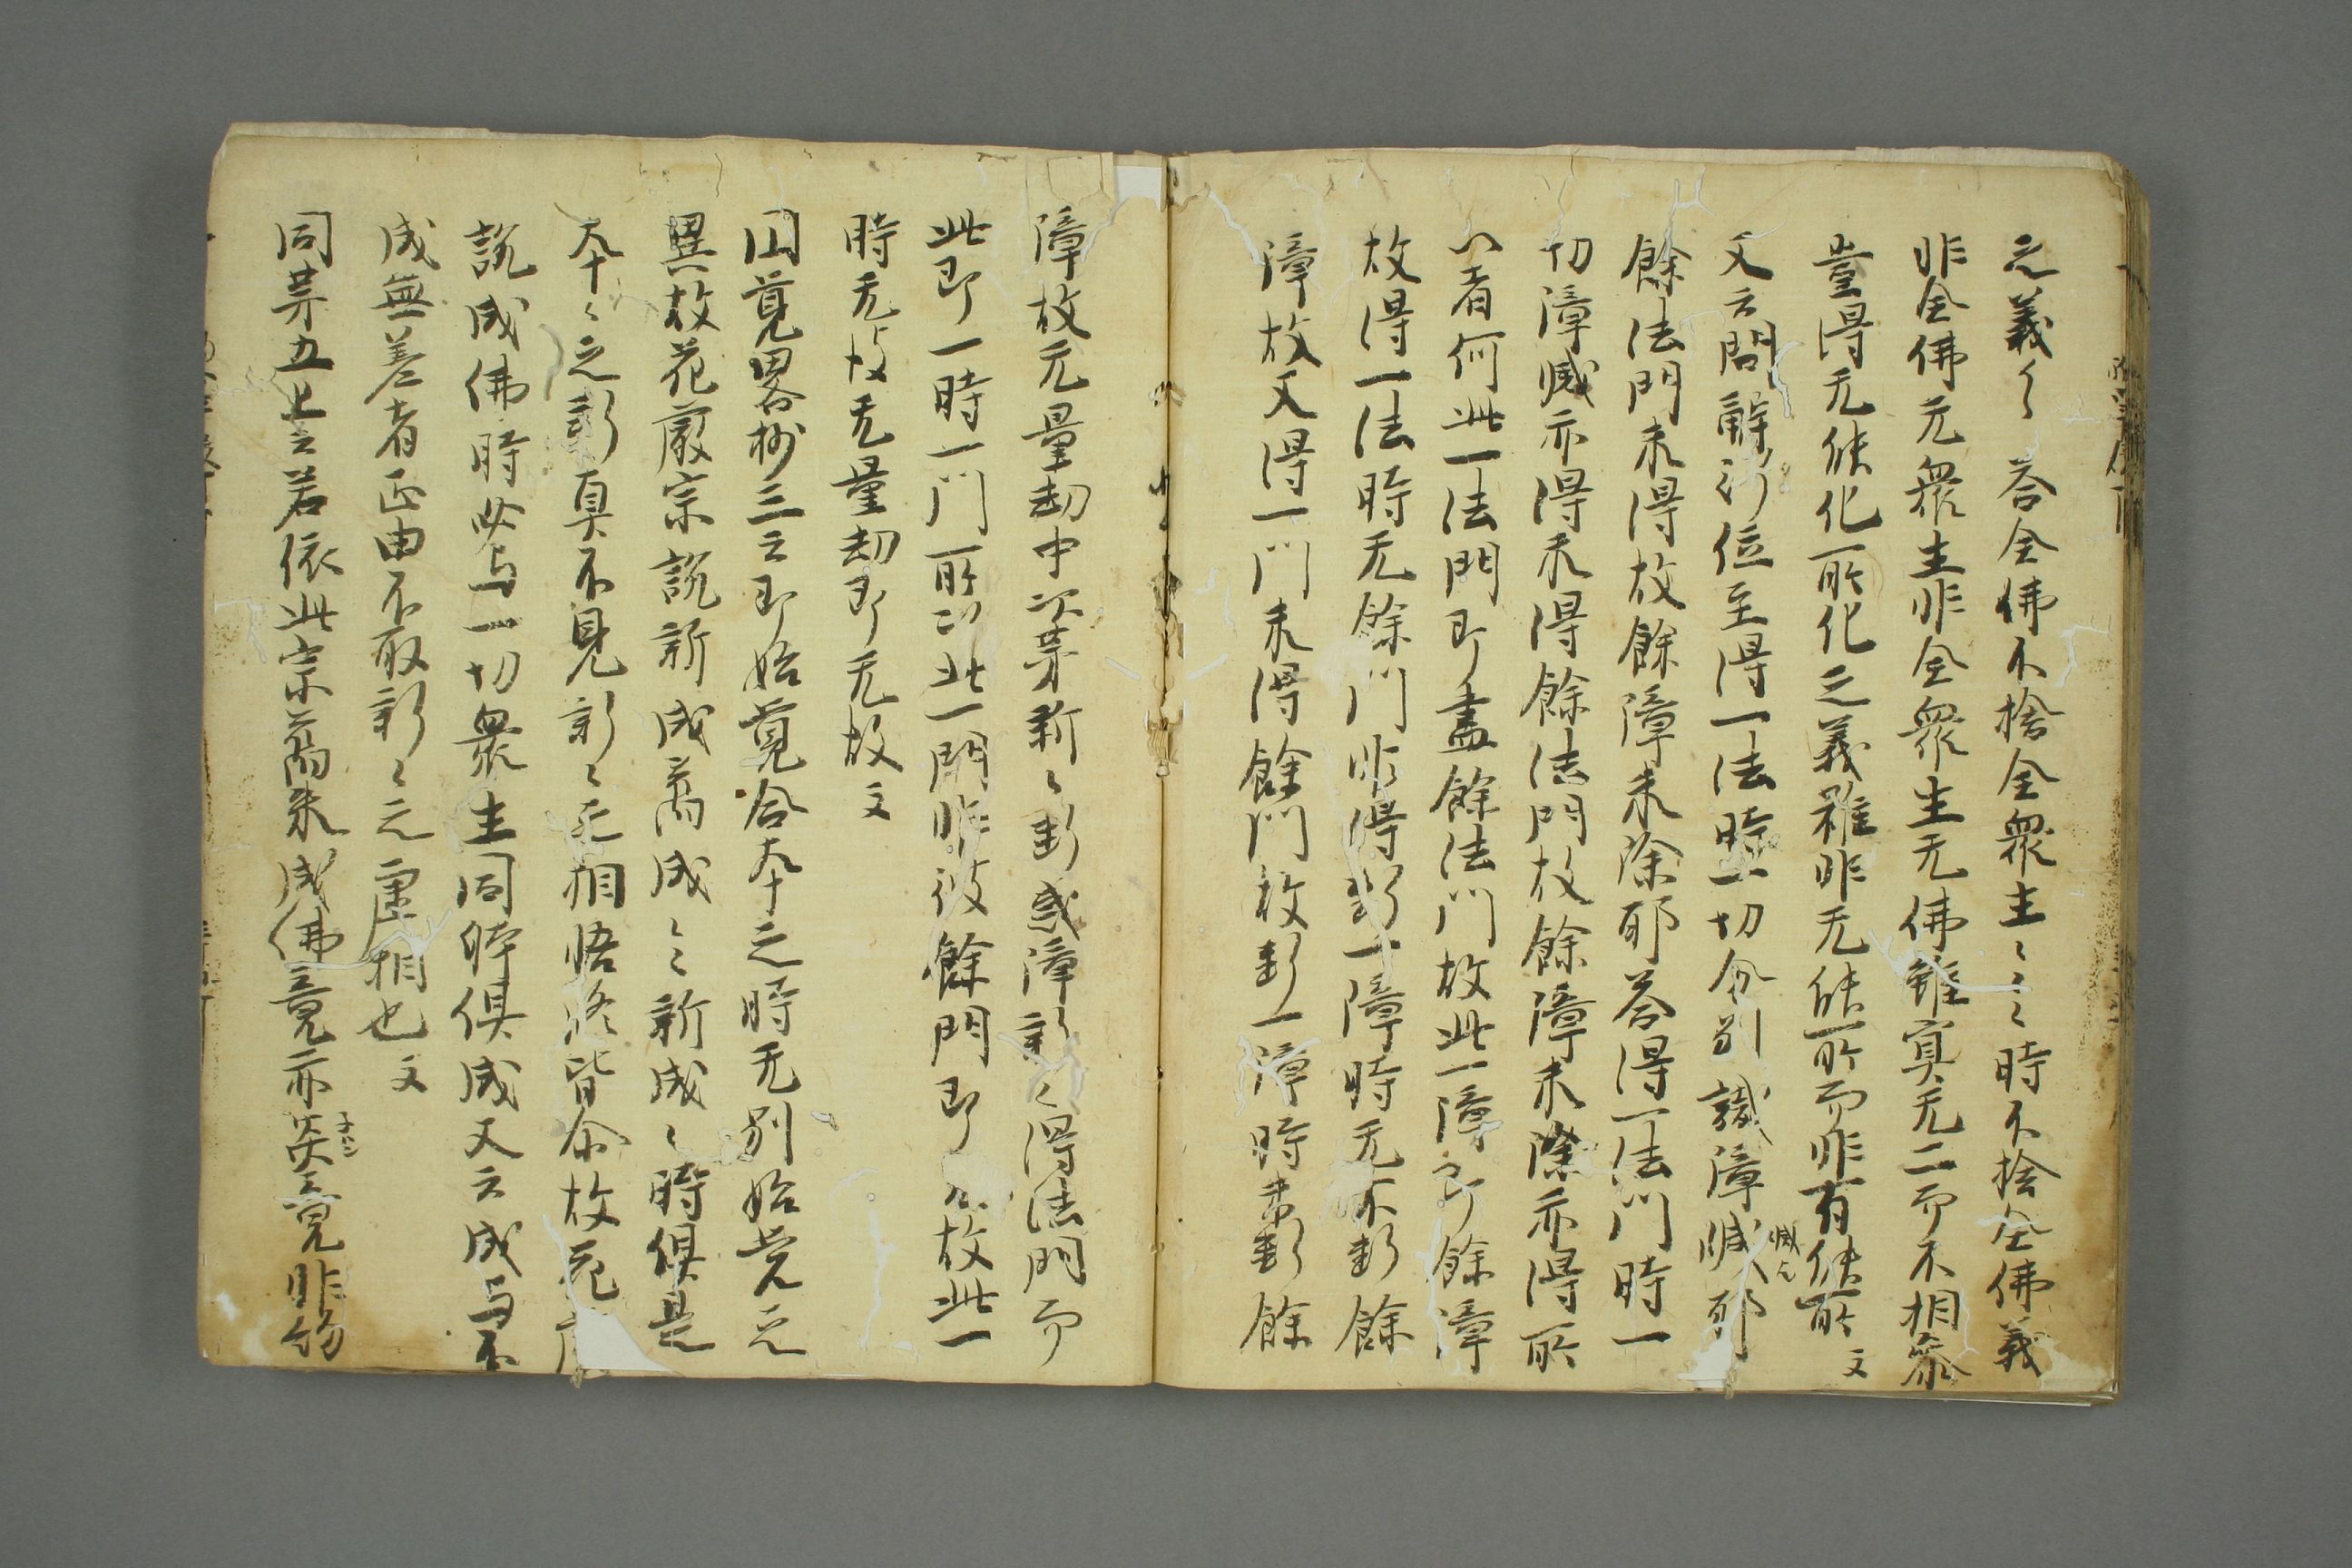 之義〻答全佛不捨全衆生〻〻〻時不捨全佛義
非全佛无衆生非全衆生无佛雖寔无二而不相参
豈得无能化所化之義雖非无能所而非有能所文
又云問解行位至得一法時一切分別識障滅耶
滅ん
餘法門未得故餘障未除耶答得一法門時一
切障滅亦得未得餘法門故餘障未除亦得所
以者何此一法門即盡餘法門故此一障即餘障
故得一法時无餘門非得断一障時无不断餘
障故又得一門未得餘門故断一障時未断餘
障故无量劫中次第新〻断惑障新〻得法門而
此即一時一門所以此一門非彼餘門即 故此一
時无故无量劫即无故文
圓覚畧抄三云即始覚合本之時无別始覚之
異故花嚴宗説新成舊成〻〻新成〻時俱是
本〻之断真不見新〻之相悟終皆尒故花
説成佛時必与一切衆生同時俱成又云成与不
成無差者正由不取新〻之虚相也文
同第五上云若依此宗舊来成佛竟亦莫竟非物